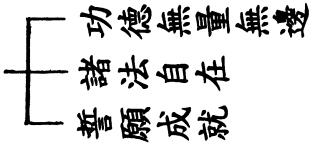 功德無量無邊
諸法自在
誓願成就